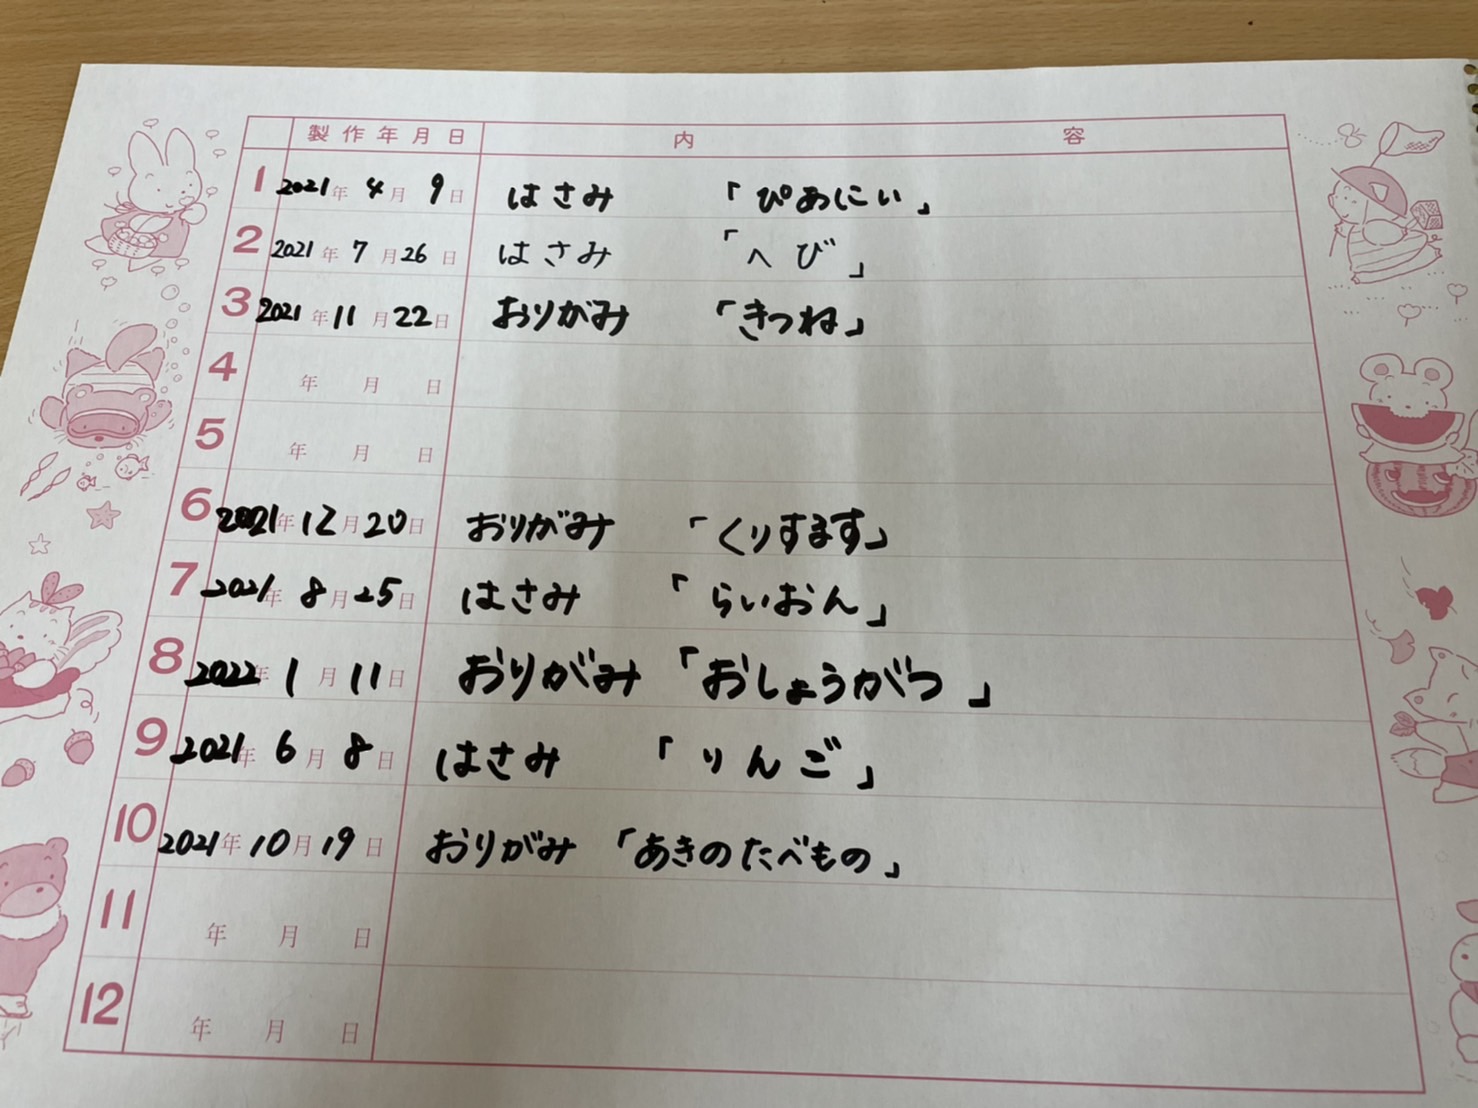 製作年月日 内容
1 2021年 4月 9日 はさみ 「ぴあにい」
2 2021年 7月26日 はさみ 「へび」
3 2021年11月22日 おりがみ 「きつね」
4 年 月 日
5 年 月 日
6 2021年12月20日 おりがみ 「くりすます」
7 2021年 8月25日 はさみ 「らいおん」
8 2022年 1月11日 おりがみ 「おしょうがつ」
9 2021年 6月 8日 はさみ 「りんご」
10 2021年10月19日 おりがみ 「あきのたべもの」
11 年 月 日
12 年 月 日